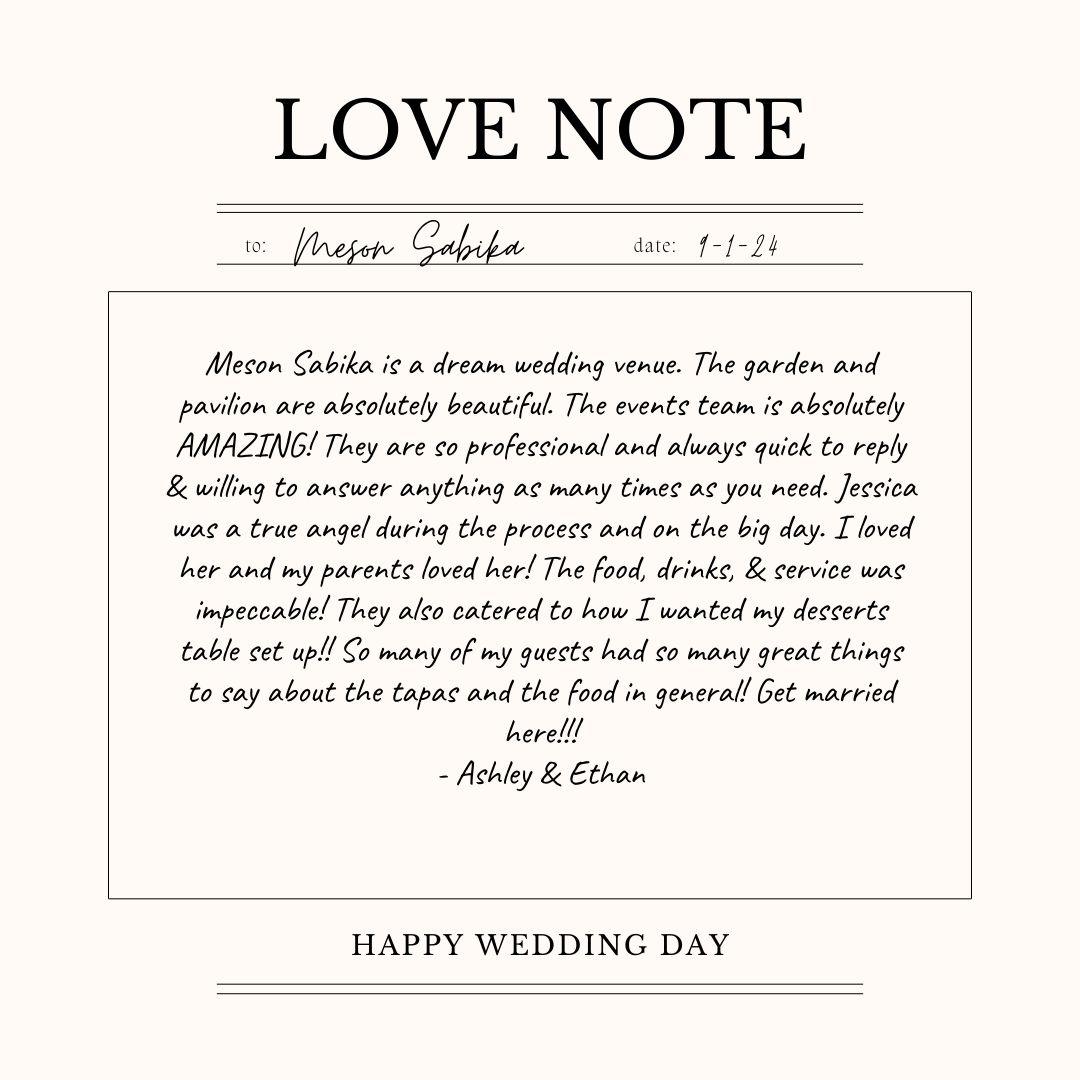 LOVE NOTE
to: Meson Sabika date: 9-1-24
Meson Sabika is a dream wedding venue. The garden and
pavilion are absolutely beautiful. The events team is absolutely
AMAZING! They are so professional and always quick to reply
& willing to answer anything as many times as you need. Jessica
was a true angel during the process and on the big day. I loved
her and my parents loved her! The food, drinks, & service was
impeccable! They also catered to how I wanted my desserts
table set up!! So many of my guests had so many great things
to say about the tapas and the food in general! Get married
here!!!
- Ashley & Ethan
HAPPY WEDDING DAY